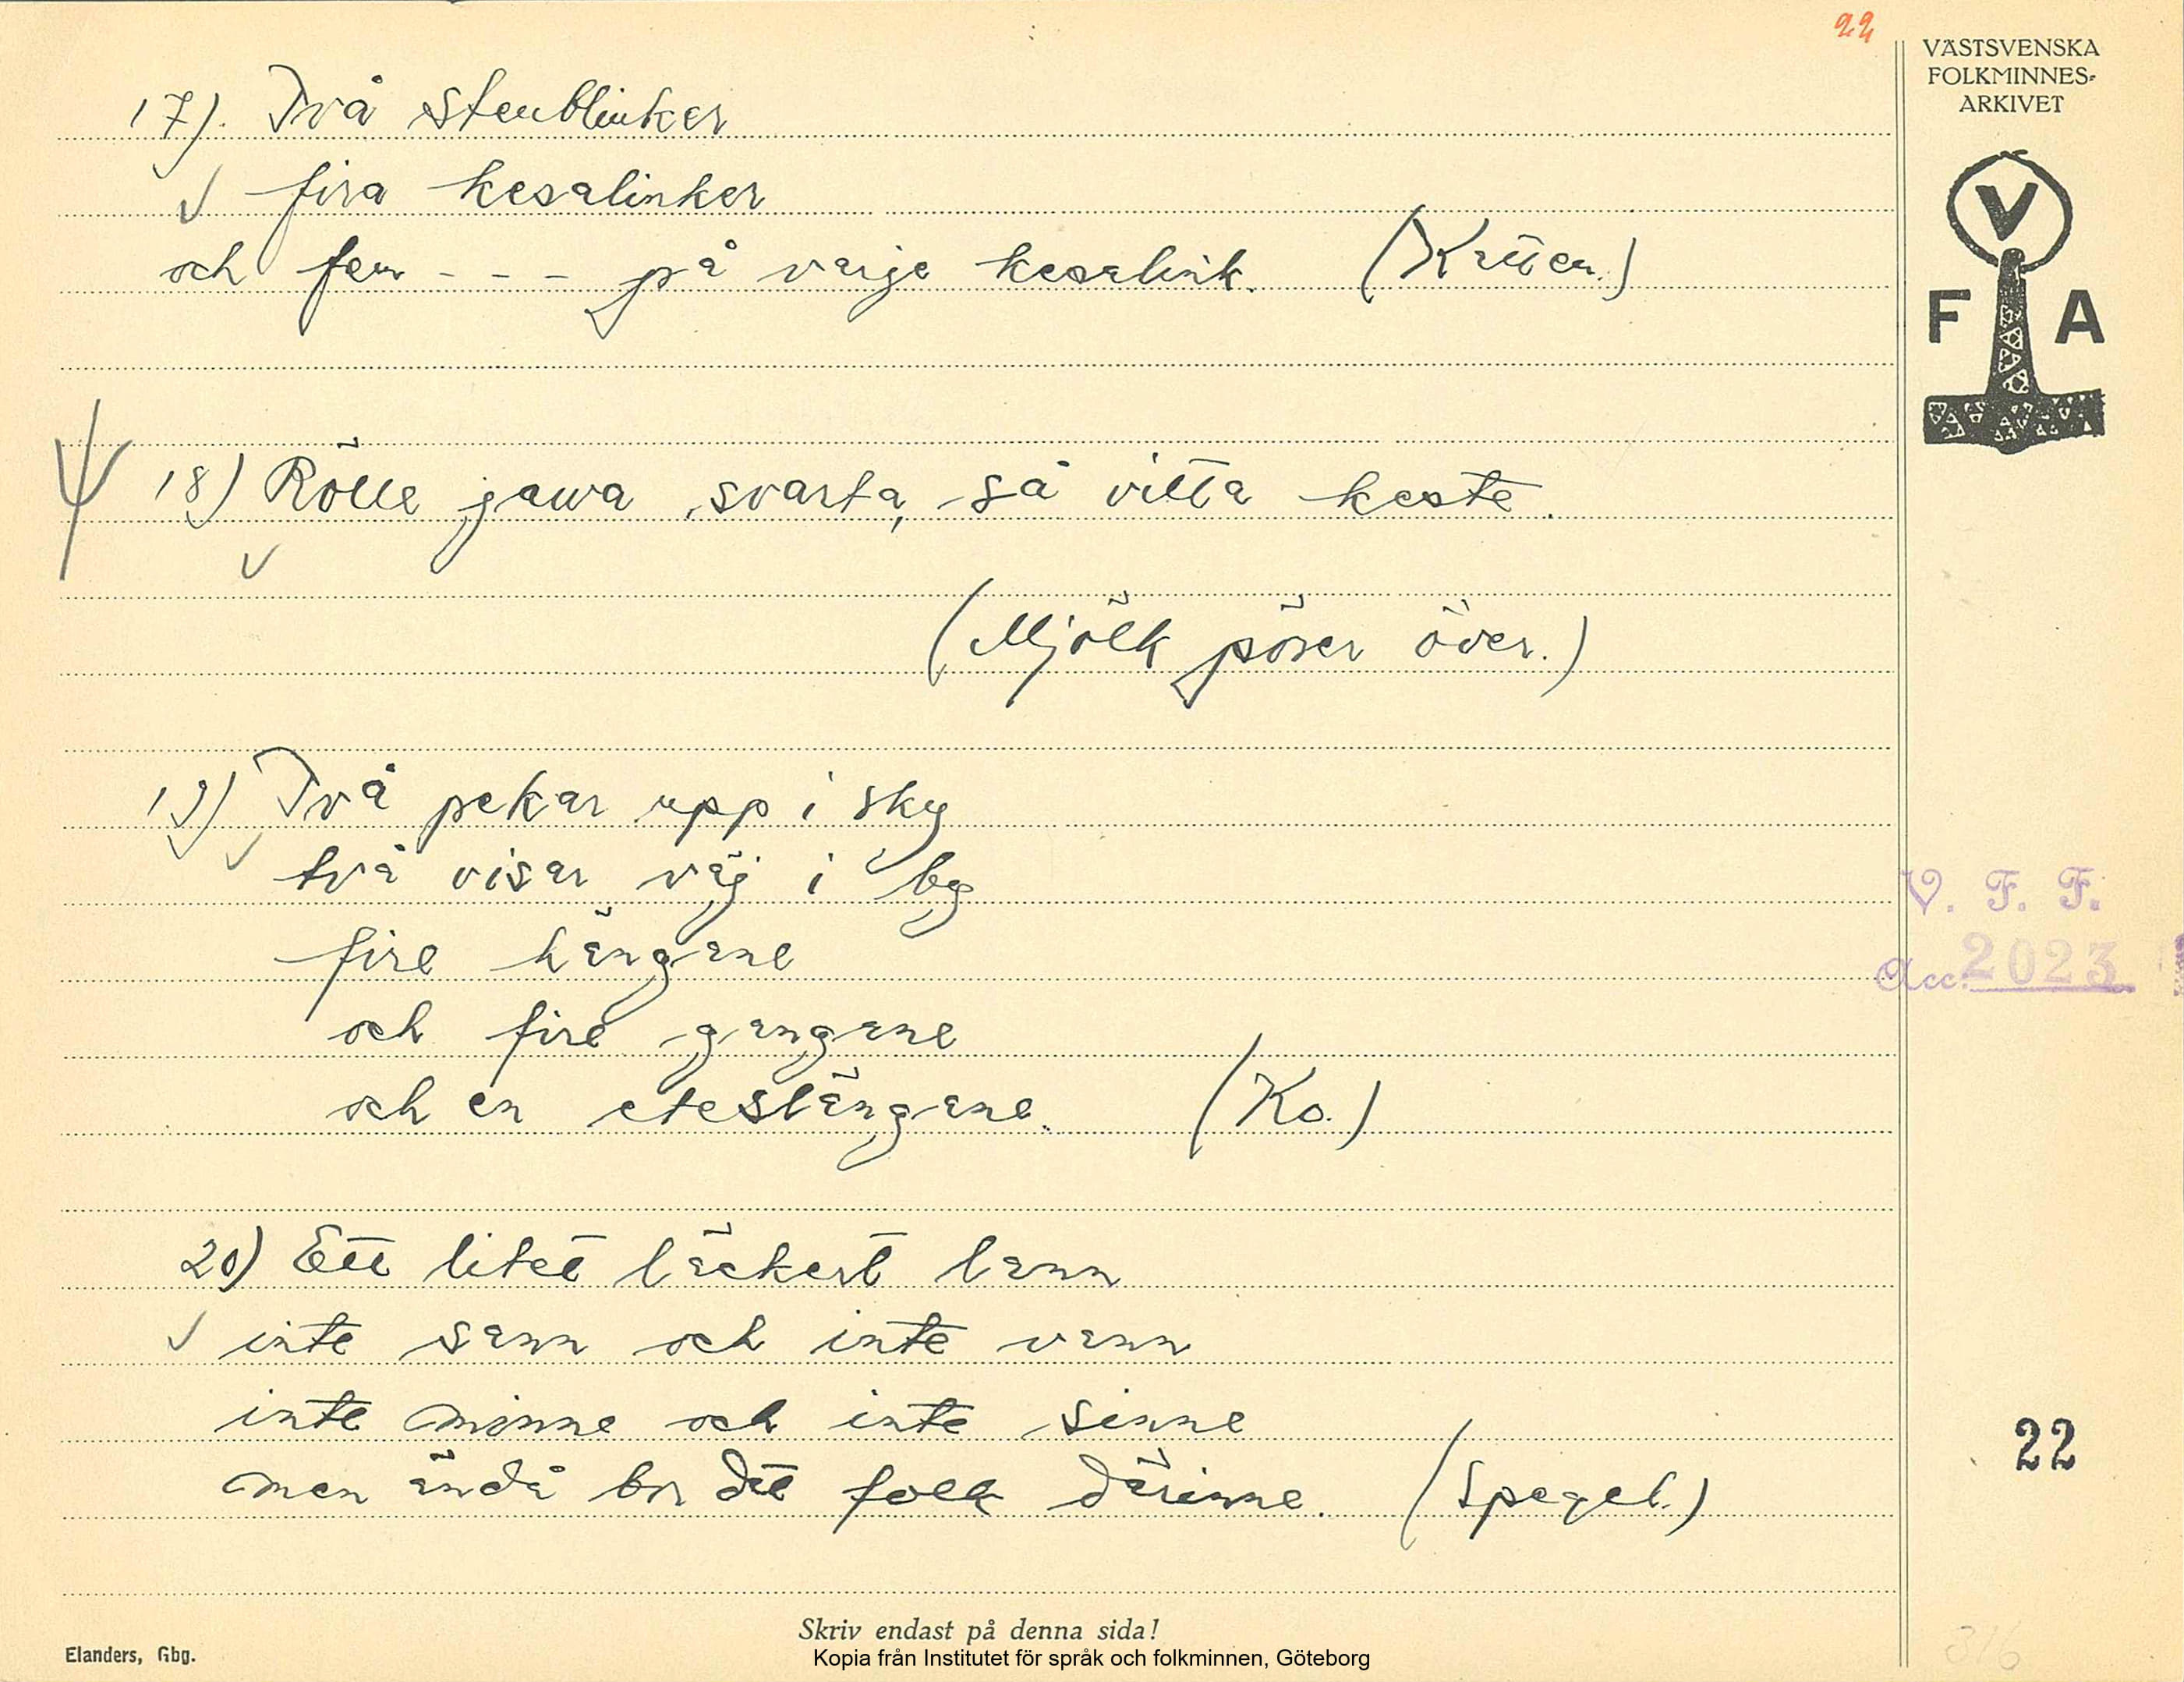 22
VÄSTSVENSKA
FOLKMINNES-
ARKIVET
V
F A
17). Två stenblinker
fira kesalinker
och fem - - - på varje kesalink. (Katten.)
18) Rölle jawa svarta, så vitta keste.
(Mjölk pöser över.)
19) Två pekar upp i sky
två visar väj i by
fire hängane
och fire gangane
och en eteslängane. (Ko.)
20) Ett litet läckert lann
inte sann och inte vann
inte minne och inte sinne
men ändå bor det folk därinne. (Spegel.)
V. F. F.
Acc. 2023
22
316
Skriv endast på denna sida!
Elanders, Gbg.
Kopia från Institutet för språk och folkminnen, Göteborg